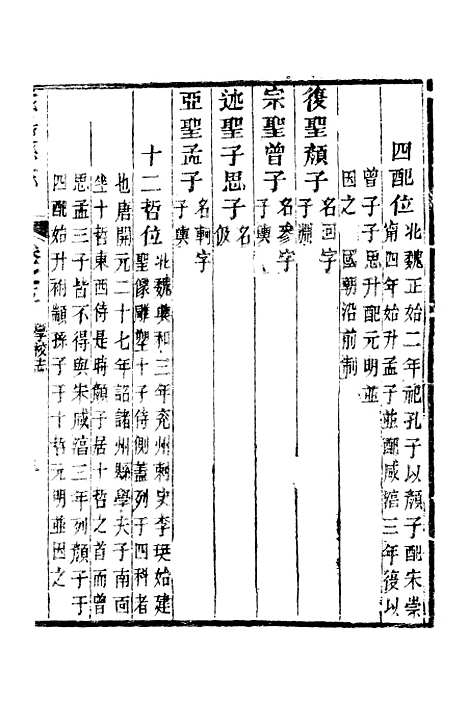 四配位 北魏正始二年祀孔子以顏子配宋崇
甯四年始升孟子並配咸淳三年復以
曾子子思升配元明並
因之　國朝沿前制
復聖顏子 名回字子淵
宗聖曾子 名參字子輿
述聖子思子 名伋
亞聖孟子 名軻字子輿
十二哲位 北魏興和三年兗州刺史李珽始建
聖像雕塑十子侍側蓋列于四科者
也唐開元二十七年詔諸州縣學夫子南面
坐十哲東西侍是時顏子居十哲之首而曾
思孟三子皆不得與朱咸淳三年列顏子于
四配始升祔顓孫子于十哲元明並因之
學校志